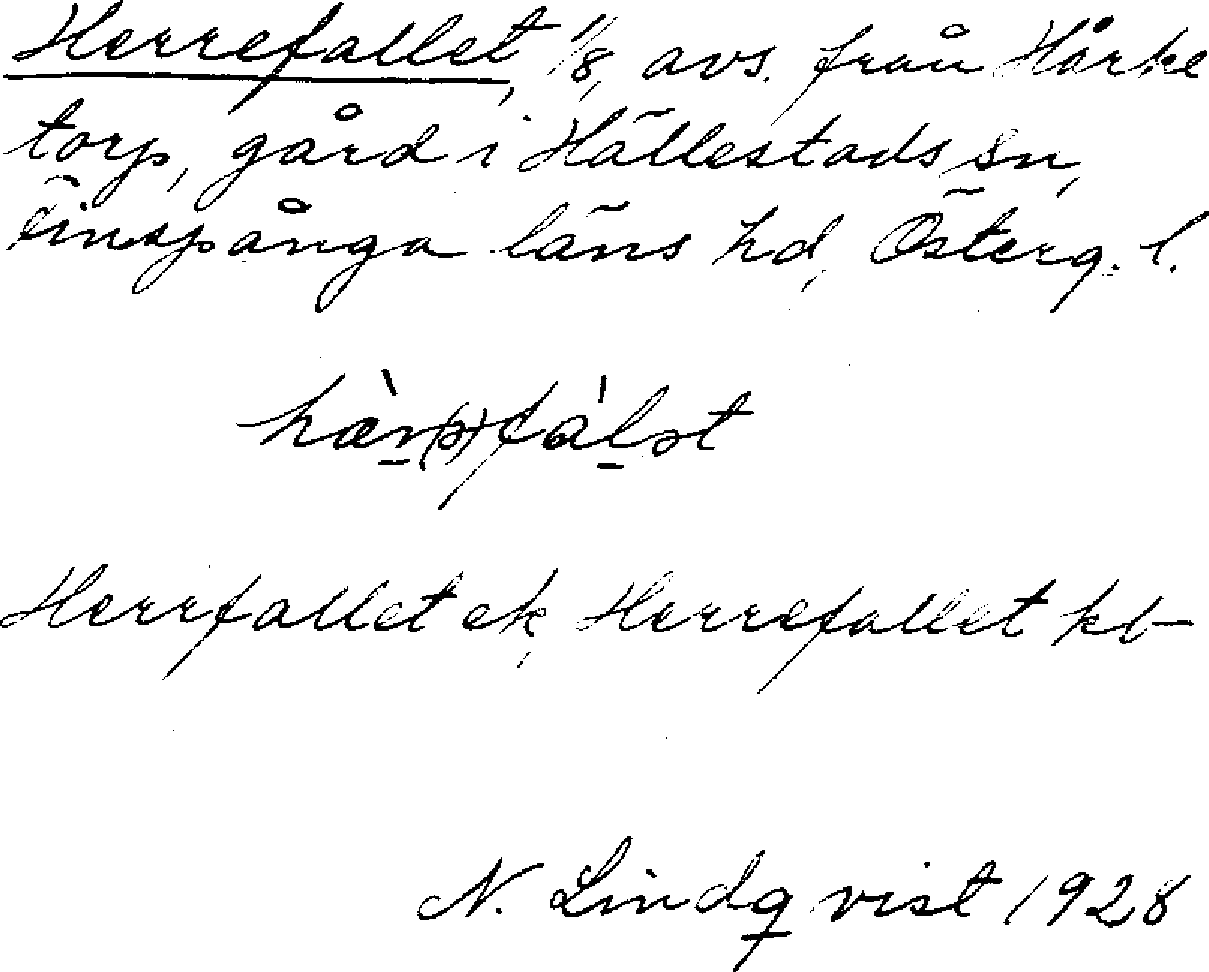 Herrefallet, 1/8, avs. från Hårke
torp, gård i Hällestads sn,
Finspånga läns hd, Österg. l.
hær(ə)fàlət
Herrfallet ek, Herrefallet kb
N. Lindqvist 1928